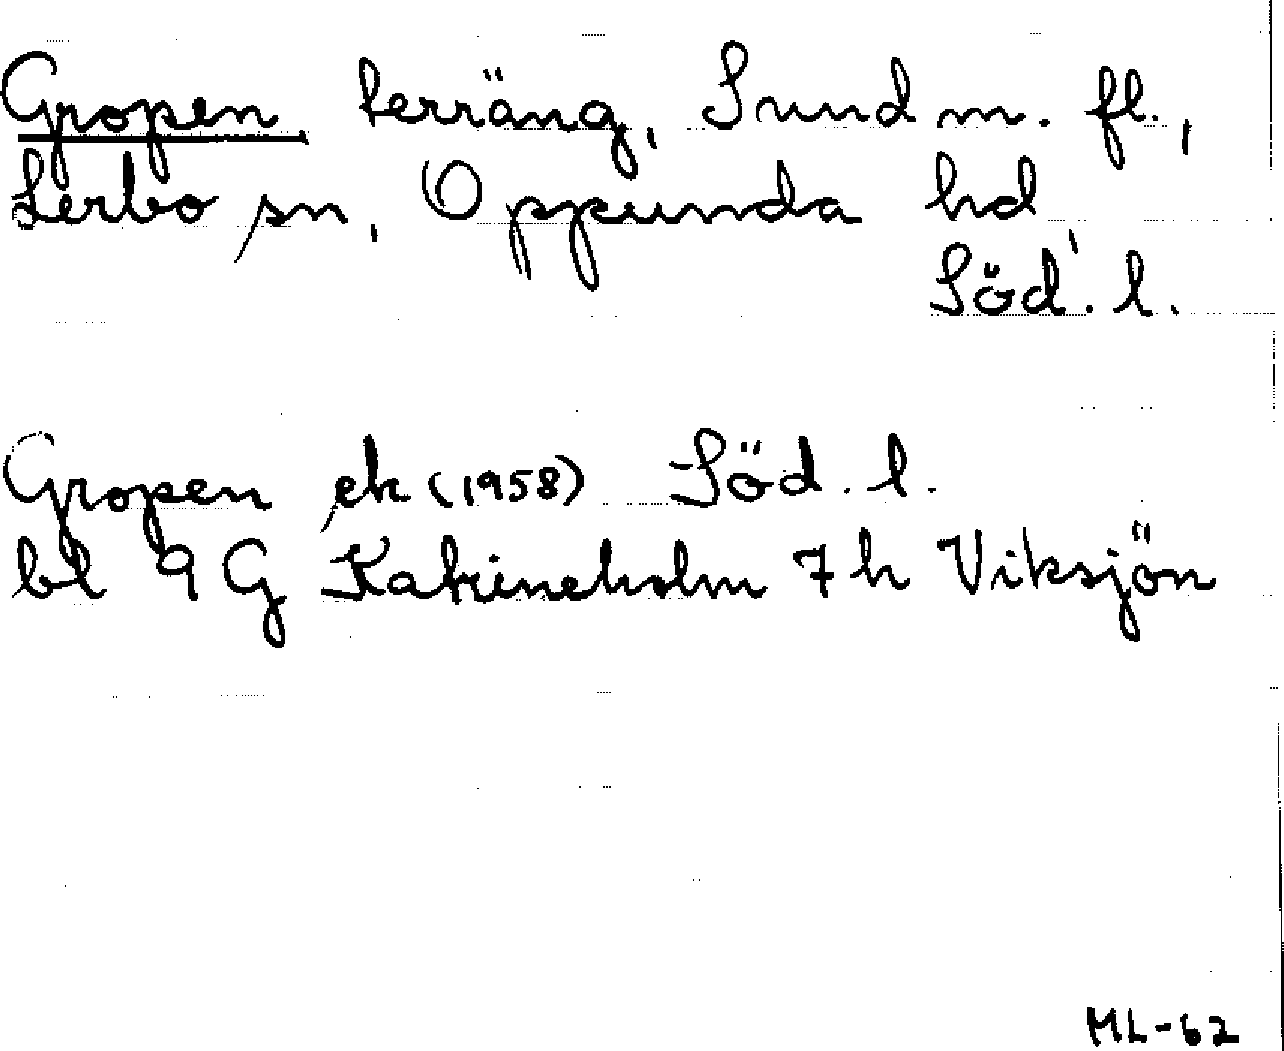 Gropen terräng, Sund m. fl.,
Lerbo sn, Oppunda hd,
Söd. l.
Gropen ek (1958) Söd. l.
bl 9 G Katrineholm 7 h Viksjön
ML-62